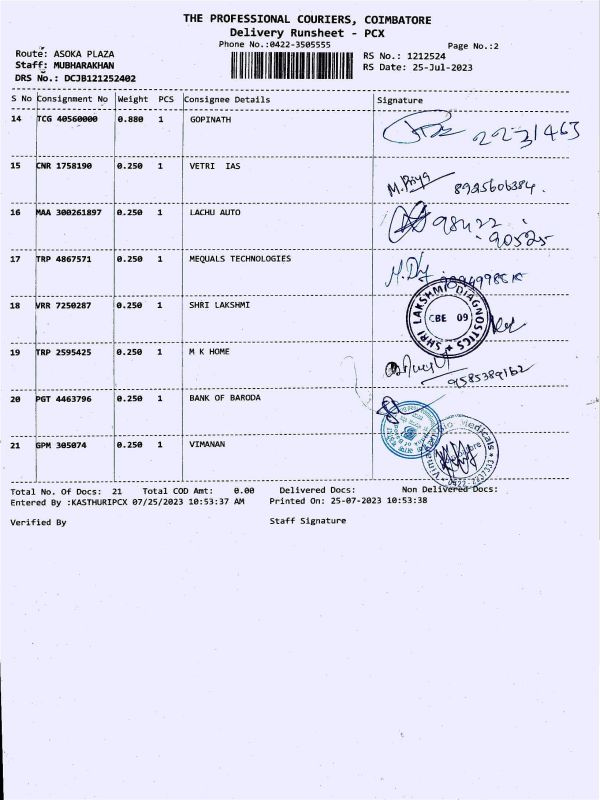 THE PROFESSIONAL COURIERS, COIMBATORE
Delivery Runsheet - PCX
Phone No.:0422-3505555
Page No.:2
Route: ASOKA PLAZA
RS No.: 1212524
Staff: MUBHARAKHAN
RS Date: 25-Jul-2023
DRS No.: DCJB121252402
S No Consignment No Weight PCS Consignee Details Signature
14 TCG 40560000 0.880 1 GOPINATH
2231463
15 CNR 1758190 0.250 1 VETRI IAS
M.Priya 8925606384.
16 MAA 300261897 0.250 1 LACHU AUTO
98422
90525
17 TRP 4867571 0.250 1 MEQUALS TECHNOLOGIES
18 VRR 7250287 0.250 1 SHRI LAKSHMI
SHRI LAKSHMI DIAGNOSTICS
CBE 09
19 TRP 2595425 0.250 1 M K HOME
9585389162
20 PGT 4463796 0.250 1 BANK OF BARODA
21 GPM 305074 0.250 1 VIMANAN
Medicals
Total No. Of Docs: 21 Total COD Amt: 0.00 Delivered Docs: Non Delivered Docs:
Entered By :KASTHURIPCX 07/25/2023 10:53:37 AM Printed On: 25-07-2023 10:53:38
Verified By Staff Signature